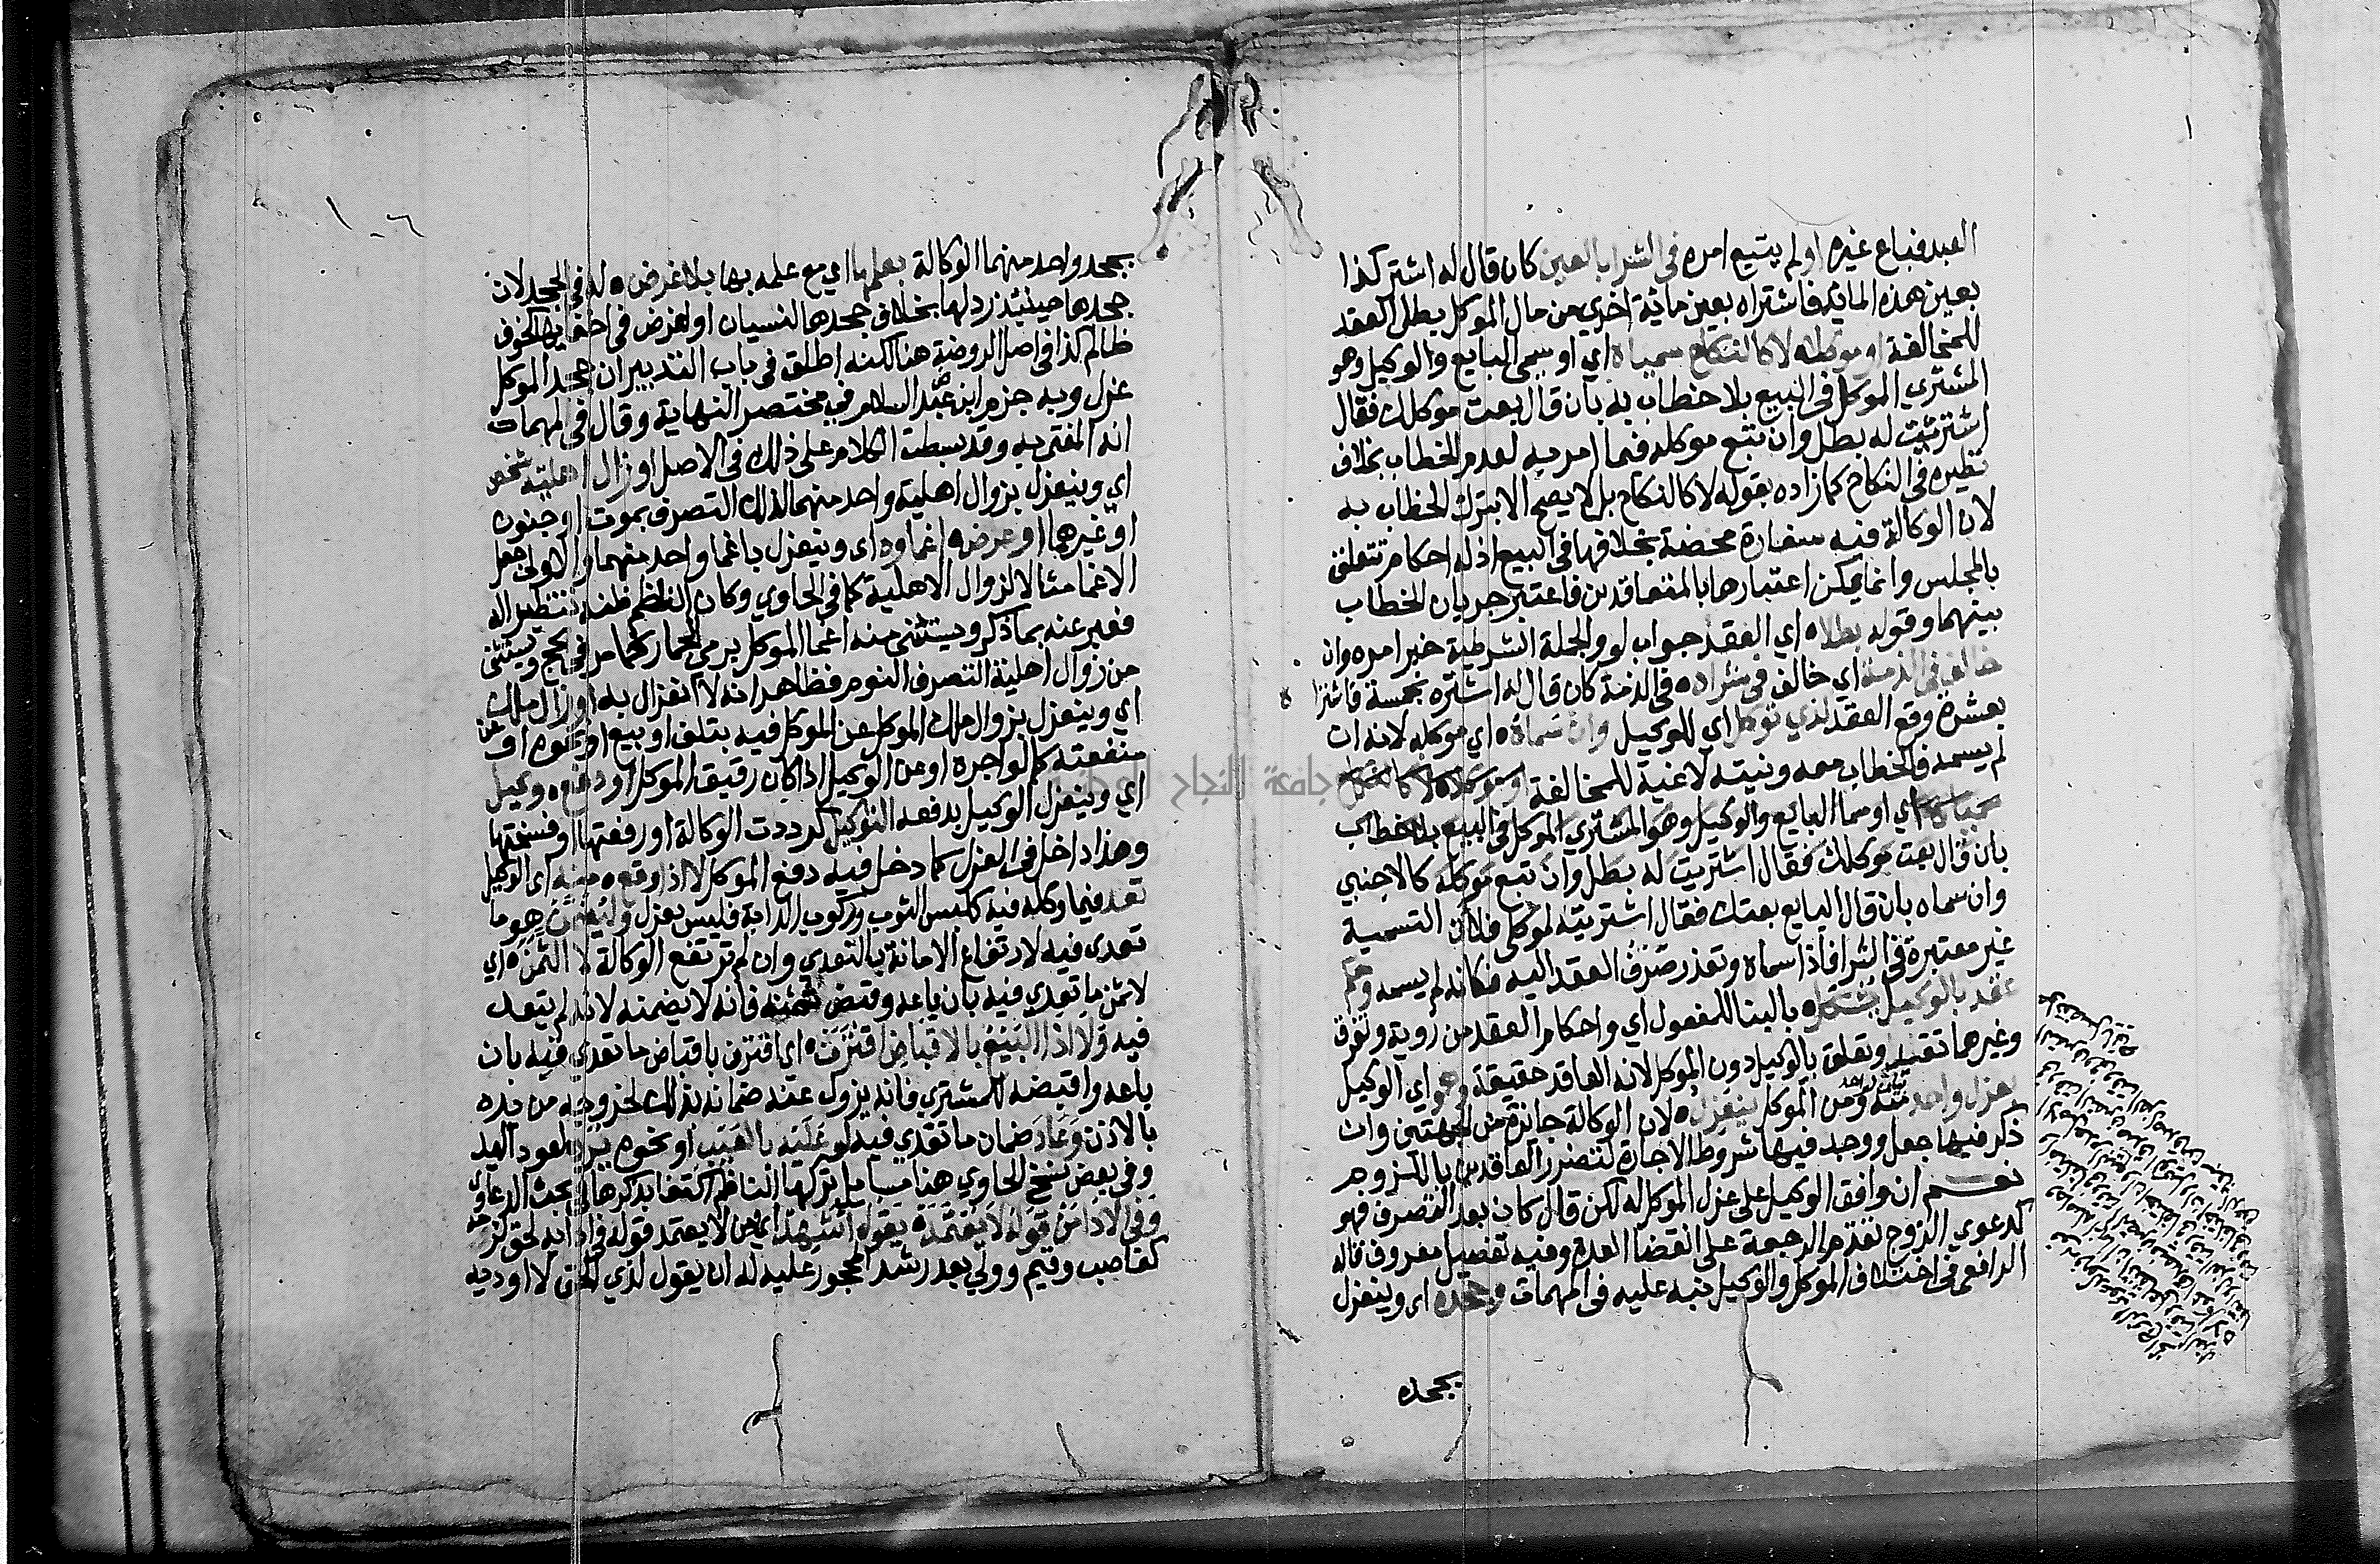 العبد فباع غيره او لم يتبع امره في الشرا بالعين كان قال له اشتر كذا
بعين هذه الماية فاشتراه بعين ماية اخري من مال الموكل بطل العقد
للمخالفة او موكله لا كالنكاح سمياه اي او سمى البايع والوكيل وهو
المشتري الموكل في البيع بلا خطاب به بان قال بعت موكلك فقال
اشتريت له بطل وان تبع موكله فيما امر به لعدم الخطاب بخلاف
نظيره في النكاح كما زاده بقوله لا كالنكاح بل لا يصح الا بترك الخطاب به
لان الوكالة فيه سفارة محضة بخلافها في البيع اذ له احكام تتعلق
بالمجلس وانما يمكن اعتبارها بالمتعاقدين فاعتبر جريان الخطاب
بينهما وقوله بطلاه اي العقد جواب لو والجملة الشرطية خبر امره وان
خالف في الذمة اي خالف في شراه في الذمة كان قال له اشتره بخمسة فاشترا ه
بعشرة وقع العقد لذي توكل اي للوكيل وان سماه اي موكله لانه ان
لم يسمه فالخطاب معه ونيته لاغية للمخالفة او موكله لا كالنكاح
سمياه اي او سما البايع والوكيل وهو المشتري الموكل في البيع بلا خطاب
بان قال بعت موكلك فقال اشتريت له بطل وان تبع موكله كالاجنبي
وان سماه بان قال البايع بعتك فقال اشتريته لموكلي فلان التسمية
غير معتبرة في الشرا فاذا سماه وتعذر صرف العقد اليه فكانه لم يسمه وحكم
عقد بالوكيل بالبنا للمفعول اي واحكام العقد من روية وتفرق
وغيرهما تقيد وتعلق بالوكيل دون الموكل لانه العاقد حقيقة وهو اي الوكيل
بعزل واحد منه ومن الموكل ينعزل لان الوكالة جائزة من الجهتين وان
ذكر فيها جعل ووجد فيها شروط الاجارة لتضرر العاقدين باللزوم
نعم ان وافق الوكيل على عزل الموكل له لكن قال كان بعد التصرف فهو
كدعوي الزوج تقدم الرجعة على انقضا العدة وفيه تفصيل معروف قاله
الرافعي في اختلاف الموكل والوكيل نبه عليه في المهمات وجحده اي وينعزل
بجحد
بجحد واحد منهما الوكالة بعلم اي مع علمه بها بلا غرض له في الجحد لان
جحدها حينئذ رد لها بخلاف جحدها لنسيان او لغرض في اخفايها كخوف
ظالم كذا في اصل الروضة هنا لكنه اطلق في باب التدبير ان جحد الموكل
عزل وبه جزم ابن عبد السلام في مختصر النهاية وقال في المهمات
انه المفتى به وقد بسطت الكلام على ذلك في الاصل او زال اهلية شخص
اي وينعزل بزوال اهلية واحد منهما لذلك التصرف بموت او جنون
او غيرهما او عرض اغماوه اي وينعزل باغما واحد منهما والاولى جعل
الاغما مثالا لزوال الاهلية كما في الحاوي وكان الناظم ظنه تنظيرا له
فعبر عنه بما ذكر ويستثنى منه اغما الموكل برمي الجمار كما مر في الحج ويستثنى
من زوال اهلية التصرف النوم فظاهر انه لا انعزال به او زال ملك
اي وينعزل بزوال ملك الموكل عن الموكل فيه بتلف او بيع او نحوه او عن
منفعته كما لو اجره او عن الوكيل اذا كان رقيق الموكل او دفع وكيل
اي وينعزل الوكيل بدفعه التوكيل كرددت الوكالة او رفعتها او فسختها
وهذا داخل في العزل كما دخل فيه دفع الموكل لا اذا وقع منه اي الوكيل
تعد فيما وكله فيه كلبس الثوب وركوب الدابة فليس بعزل وليضمن هو ما
تعدى فيه لارتفاع الامانة بالتعدي وان لم ترتفع الوكالة لا الثمن اي
لا ثمن ما تعدي فيه بان باعه وقبض ثمنه فانه لا يضمنه لانه لم يتعد
فيه ولا اذا البيع بالاقباض اقترن اي اقترن باقباض ما تعدي فيه بان
باعه واقبضه للمشتري فانه يزول عنه ضمانه بذلك لخروجه من يده
بالاذن وعاد ضمان ما تعدي فيه لو عليه بالعيب او نحوه يرد لعود اليد
وفي بعض نسخ الحاوي هنا مسايل تركها الناظم اكتفا بذكرها في بحث الدعاوي
وفي الادا من قوله لا يعتمد بقوله اشهد اي من لا يعتمد قوله في ادايه لحق لزمه
كغاصب وقيم وولي بعد رشد المحجور عليه له ان يقول لذي الحق لا اوديه
جامعة النجاح الوطنية